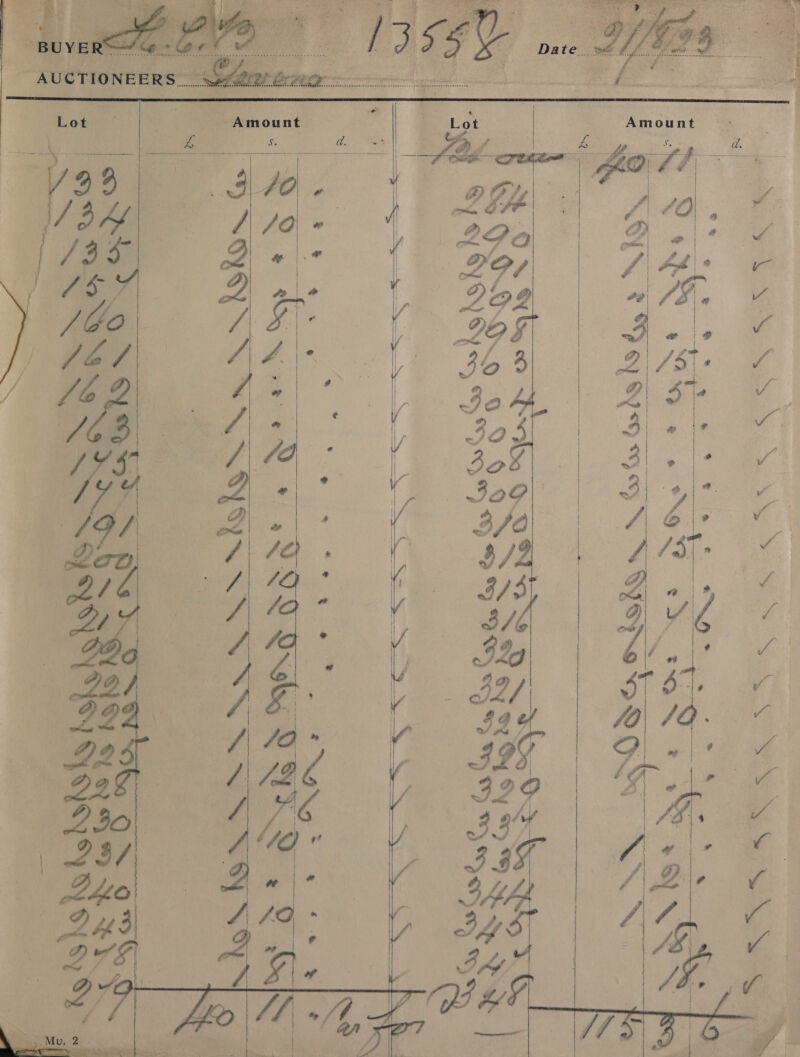 BUYER L.C.Co 13558 Date 21/8/23
AUCTIONEERS
Lot Amount Lot Amount
£ s. d. £ s. d.
133 3 10 . ✓
134 1 10 . ✓
135 2 . . ✓
157 2 . . ✓
160 1 8 . ✓
161 1 2 . ✓
162 1 . . ✓
163 1 . . ✓
175 1 10 . ✓
177 2 . . ✓
191 2 . . ✓
200 1 10 . ✓
216 1 10 . ✓
217 1 10 . ✓
220 1 10 . ✓
221 1 6 . ✓
222 1 8 . ✓
225 1 10 . ✓
228 1 12 6 ✓
230 1 7 6 ✓
231 1 10 . ✓
240 2 . . ✓
243 1 10 . ✓
278 2 . . ✓
279 1 8 . ✓
40 11 .
40 11
284 1 10 . ✓
290 2 . . ✓
291 1 4 . ✓
292 . 18 . ✓
298 3 . . ✓
303 2 15 . ✓
304 2 5 . ✓
305 3 . . ✓
308 3 . . ✓
309 3 . . ✓
310 1 6 . ✓
312 1 15 . ✓
315 2 . . ✓
316 2 7 6 ✓
320 6 . . ✓
321 5 5 . ✓
327 10 10 . ✓
328 9 . . ✓
329 8 . . ✓
337 18 . ✓
338 1 . . ✓
344 1 2 . ✓
345 1 1 . ✓
347 18 . ✓
348 18 . ✓
115 3 6
Mu. 2